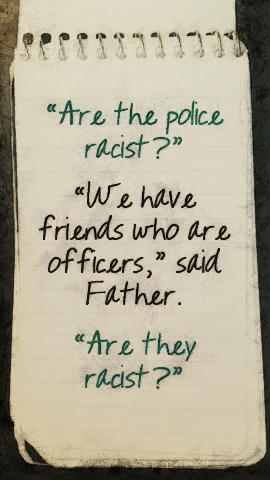 “Are the police
racist?”
“We have
friends who are
officers,” said
Father.
“Are they
racist?”